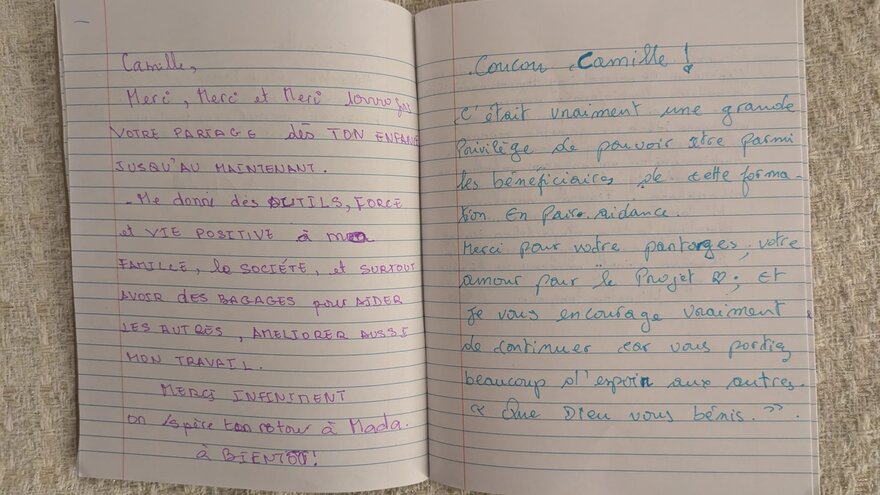 Camille,
Merci, Merci et Merci
VOTRE PARTAGE dès TON ENFANCE
JUSQU'AU MAINTENANT.
- Me donne des OUTILS, FORCE
et VIE POSITIVE à ma
FAMILLE, la SOCIÉTÉ, et SURTOUT
AVOIR DES BAGAGES pour AIDER
LES AUTRES, AMELIORER AUSSI
MON TRAVAIL.
MERCI INFINIMENT
on espère ton retour à Mada.
à BIENTÔT!
Coucou Camille!
C'était vraiment une grande
Privilège de pouvoir être parmi
les bénéficiaires de cette forma-
tion en Paire-aidance.
Merci pour votre partages, votre
amour pour le Projet ♡; Et
je vous encourage vraiment
de continuer car vous portiez
beaucoup d'espoir aux autres.
"Que Dieu vous bénis.".